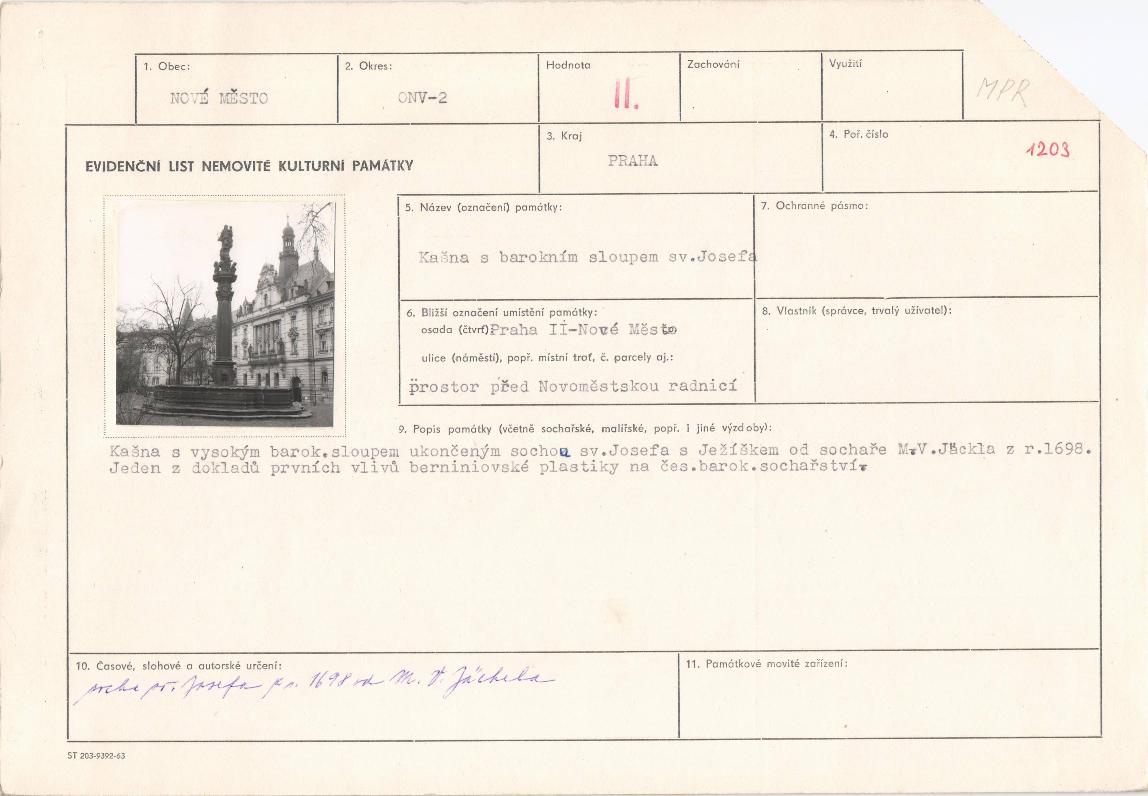 1. Obec:
NOVÉ MĚSTO
2. Okres:
ONV-2
Hodnota
II.
Zachování
Využití
MPR
EVIDENČNÍ LIST NEMOVITÉ KULTURNÍ PAMÁTKY
3. Kraj
PRAHA
4. Poř. číslo
1203
5. Název (označení) památky:
Kašna s barokním sloupem sv.Josefa
7. Ochranné pásmo:
6. Bližší označení umístění památky:
osada (čtvrť) Praha II-Nové Město
ulice (náměstí), popř. místní trať, č. parcely aj.:
prostor před Novoměstskou radnicí
8. Vlastník (správce, trvalý uživatel):
9. Popis památky (včetně sochařské, malířské, popř. i jiné výzdoby):
Kašna s vysokým barok.sloupem ukončeným sochou sv.Josefa s Ježíškem od sochaře M.V.Jäckla z r.1698.
Jeden z dokladů prvních vlivů berniniovské plastiky na čes.barok.sochařství.
10. Časové, slohové a autorské určení:
socha sv. Josefa z r. 1698 od M. V. Jäckela
11. Památkové movité zařízení:
ST 203-9392-63